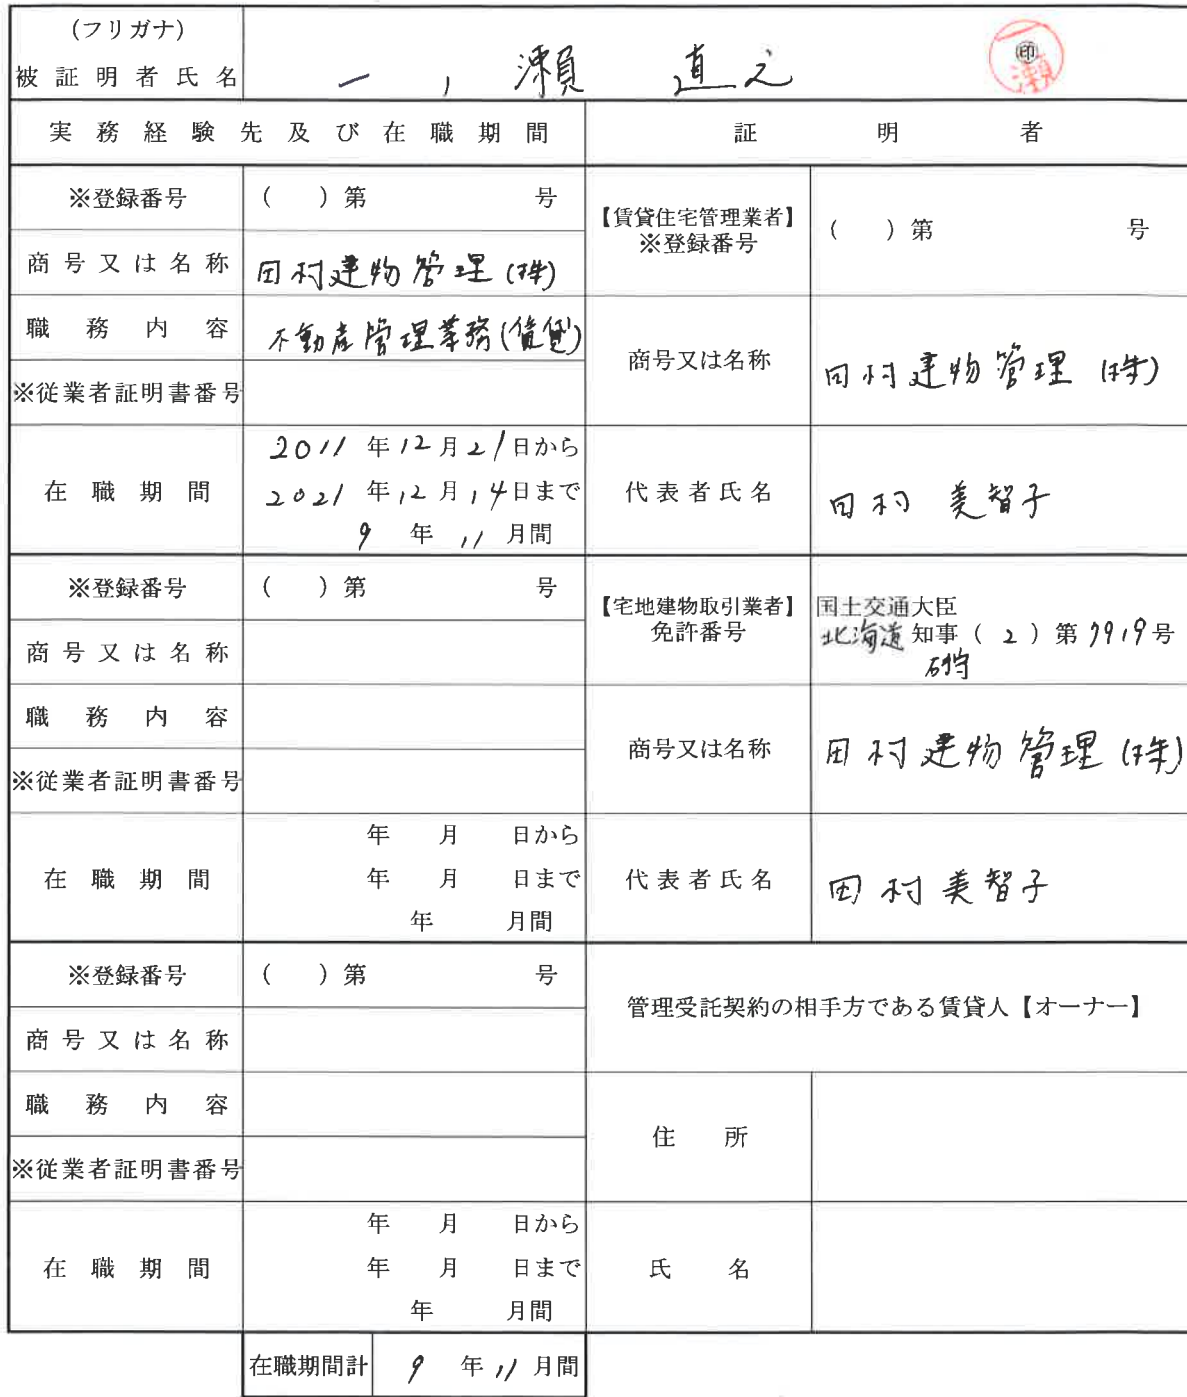 (フリガナ)
被証明者氏名 一ノ瀬 直之 ㊞ 一瀬
実務経験先及び在職期間 証明者
※登録番号 ( )第 号 【賃貸住宅管理業者】※登録番号 ( )第 号
商号又は名称 田村建物管理(株)
職務内容 不動産管理業務(賃貸) 商号又は名称 田村建物管理(株)
※従業者証明書番号
在職期間 2011年12月21日から
2021年12月14日まで 代表者氏名 田村 美智子
9年11月間
※登録番号 ( )第 号 【宅地建物取引業者】免許番号 国土交通大臣
北海道知事(2)第7919号
石狩
商号又は名称
職務内容 商号又は名称 田村建物管理(株)
※従業者証明書番号
年 月 日から
在職期間 年 月 日まで 代表者氏名 田村美智子
年 月間
※登録番号 ( )第 号 管理受託契約の相手方である賃貸人【オーナー】
商号又は名称
職務内容 住所
※従業者証明書番号
年 月 日から
在職期間 年 月 日まで 氏名
年 月間
在職期間計 9年11月間